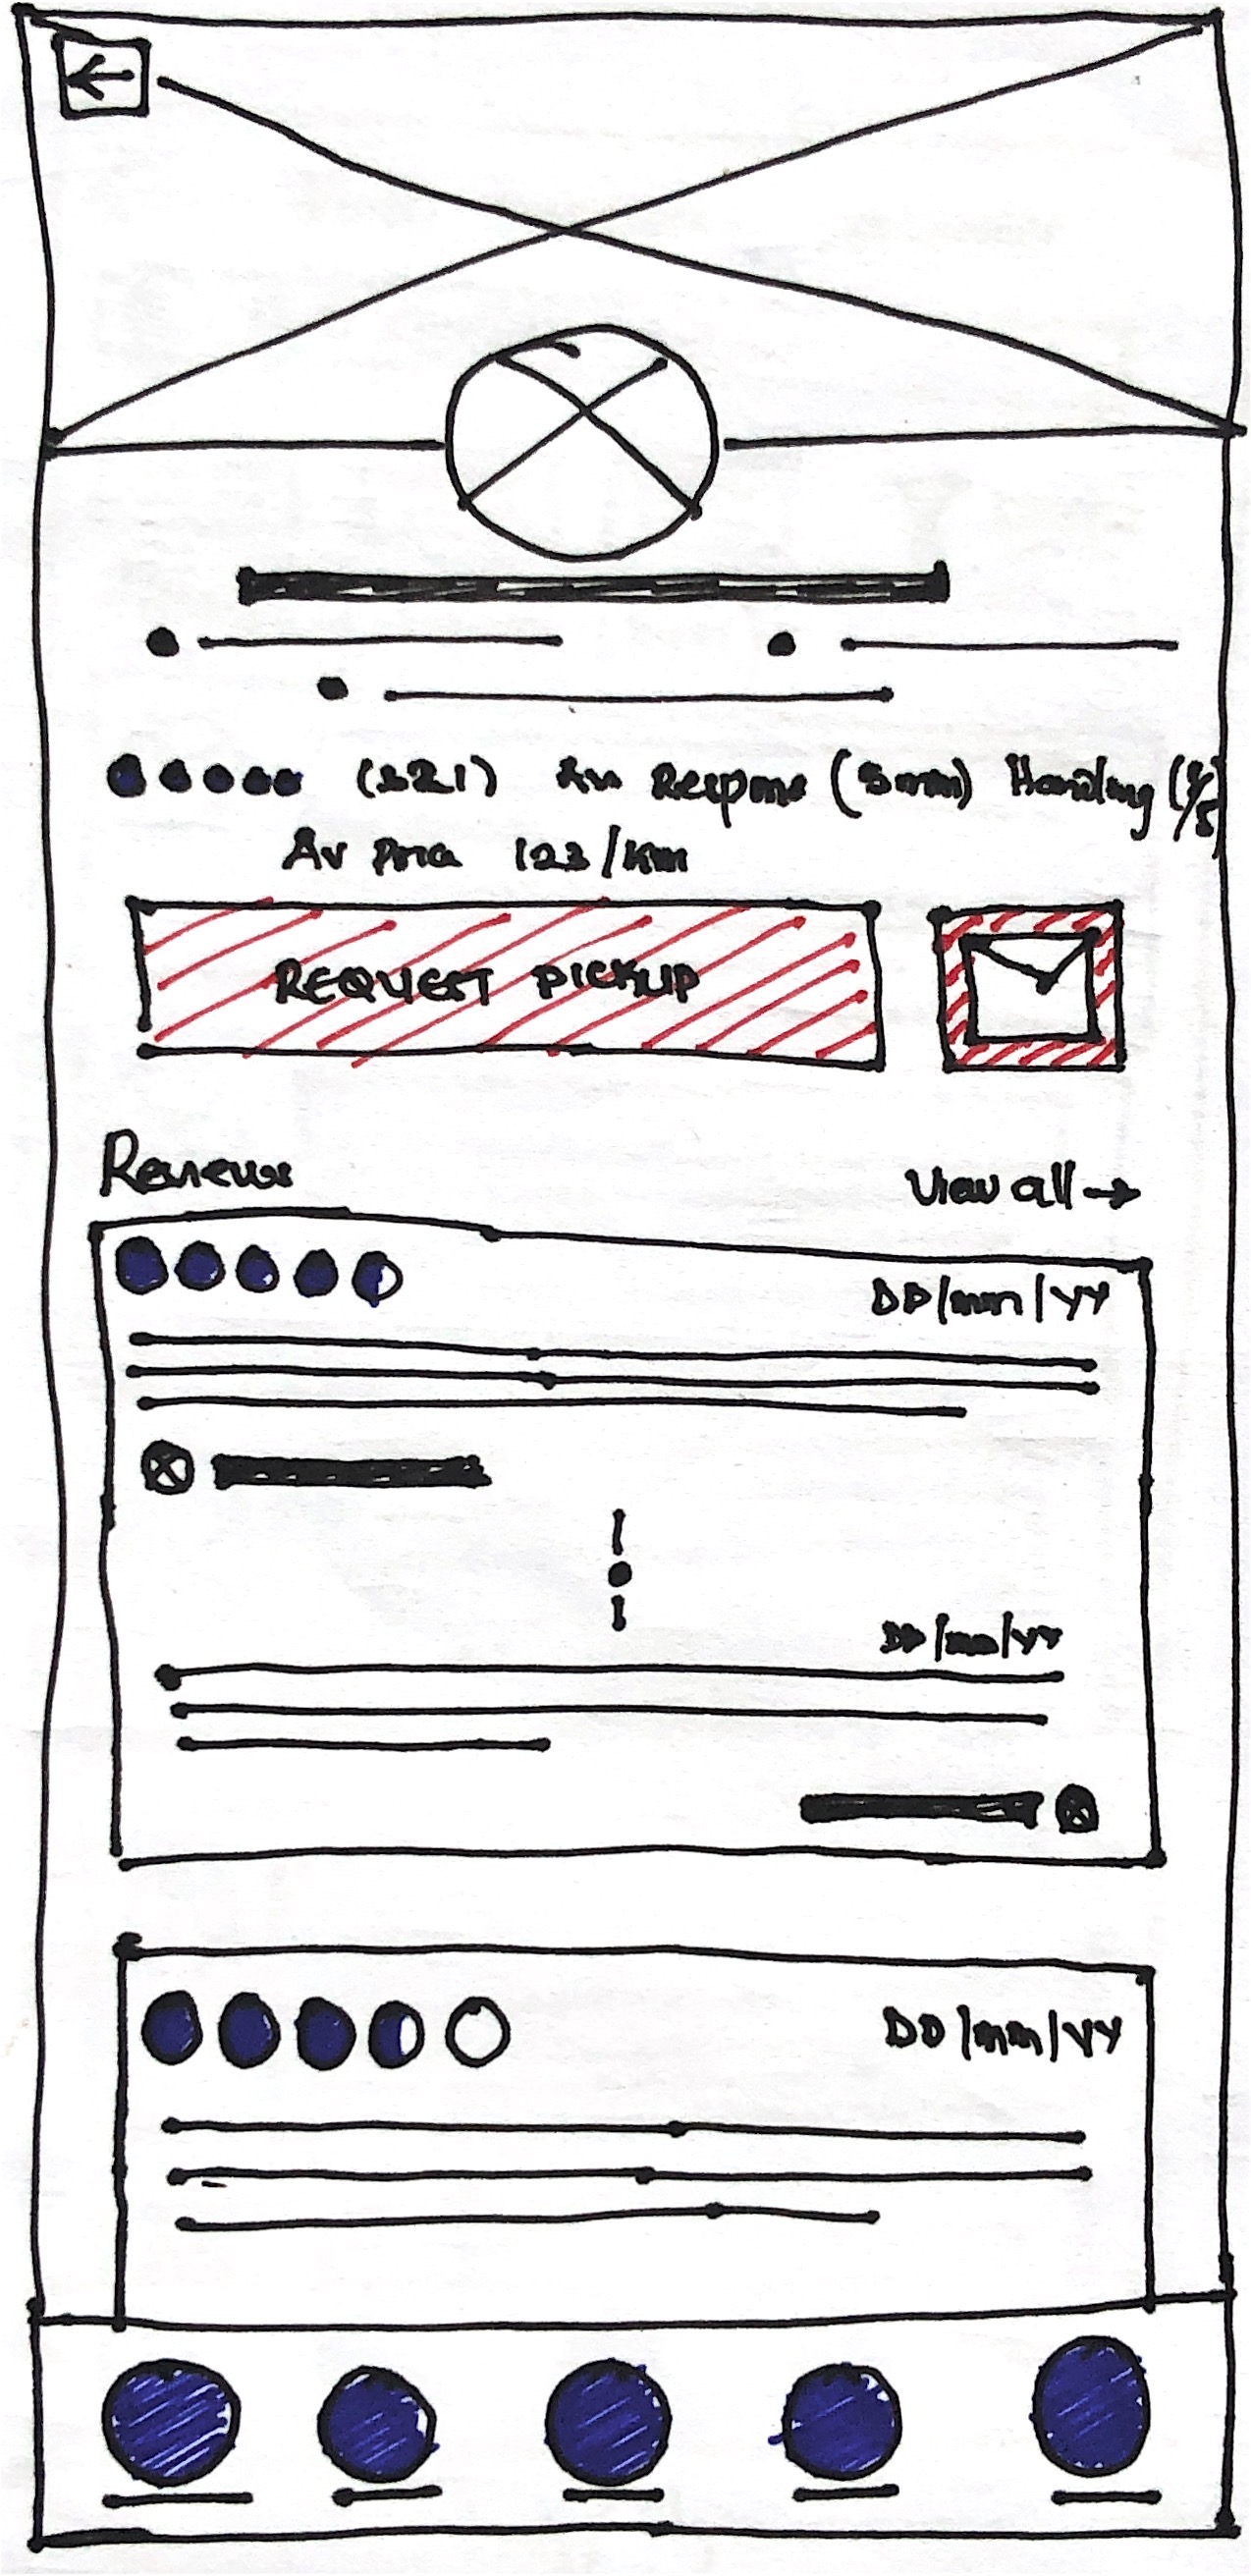 (321) Av Response (5min) Handling (4/5)
Av Price 123/km
REQUEST PICKUP
Reviews
View all →
DD/mm/YY
DD/mm/YY
DD/mm/YY